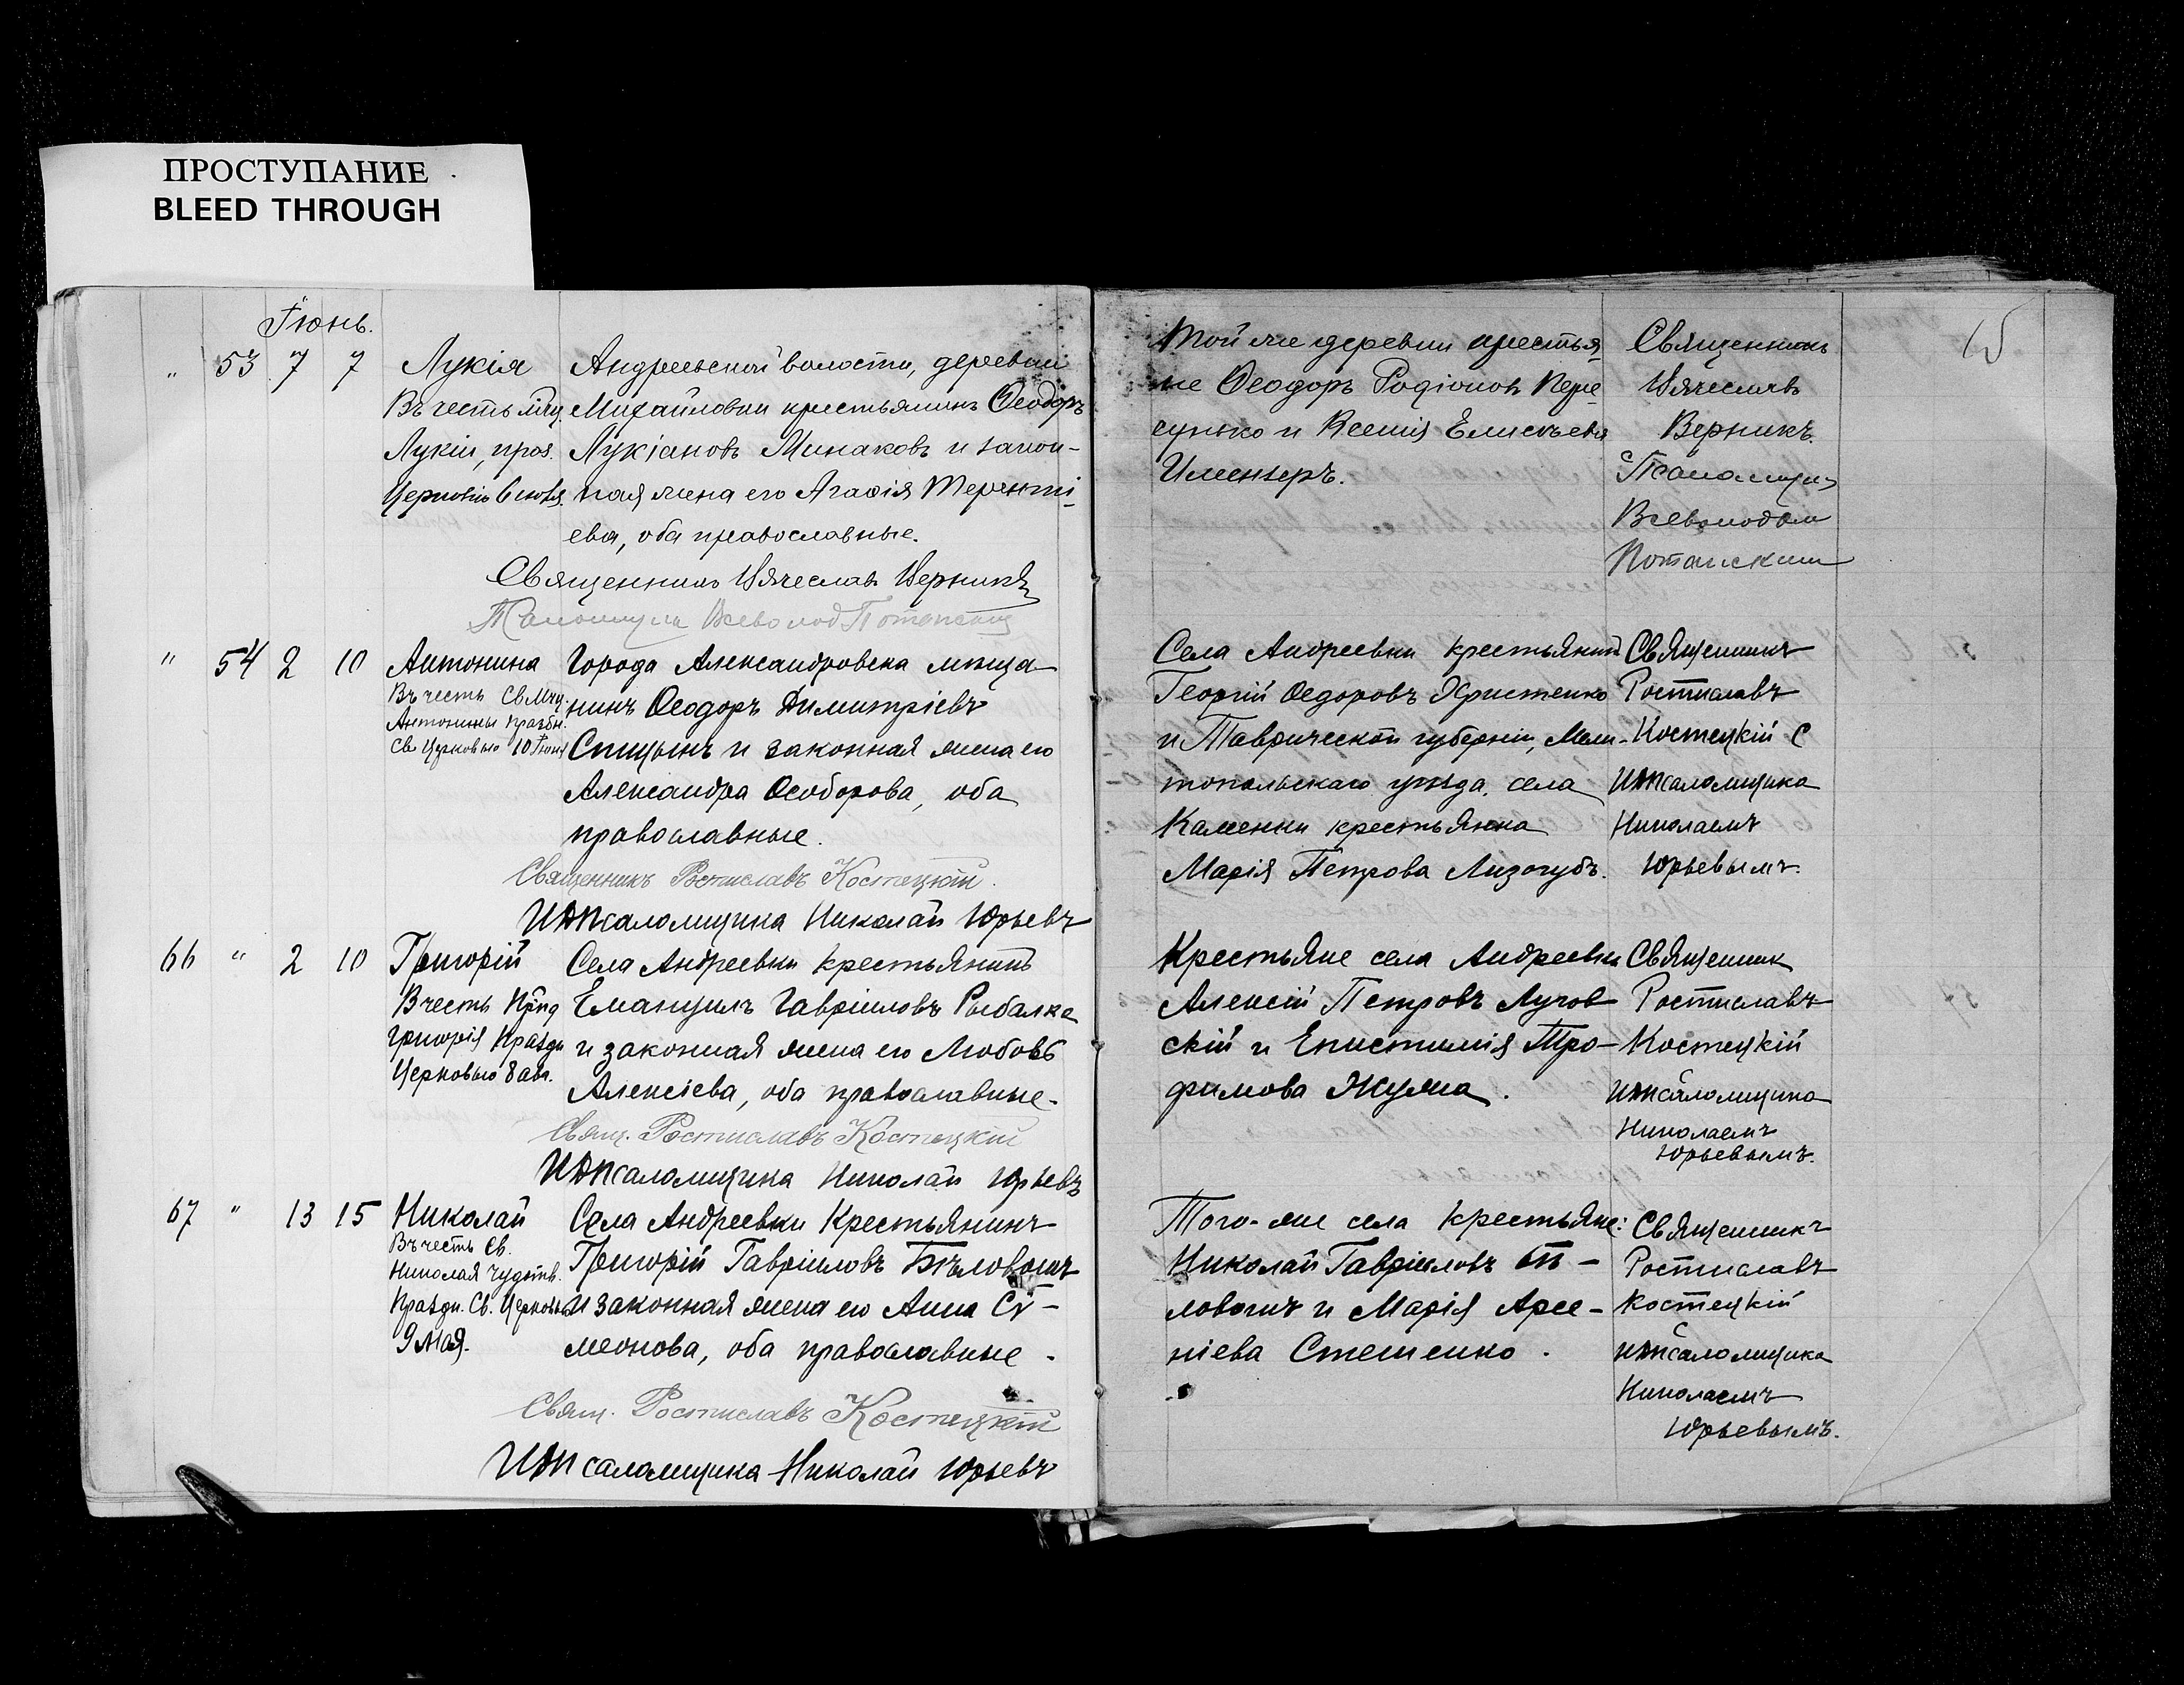 ПРОСТУПАНИЕ
BLEED THROUGH
Іюнь.
" 53 7 7 Лукія
Въ честь мчц.
Лукіи, праз.
Церковію 6 іюля.
Андреевской волости, деревни
Михайловки крестьянинъ Ѳеодоръ
Лукіановъ Минаковъ и закон-
ная жена его Агаѳія Теренті-
ева, оба православные.
Священникъ Вячеславъ Верникъ
Псаломщикъ Всеволод Потапскій
Той же деревни крестья-
не Ѳеодоръ Родіоновъ Пере-
сунько и Ксенія Елисѣева
Священникъ
Вячеславъ
Верникъ.
Псаломщик
Всеволодом
15
" 54 2 10 Антонина
Въ честь Св. Мчц.
Антонины празdн.
Св. Церковью 10 Іюня
Города Александровска мѣща-
нинъ Ѳеодоръ Димитріевъ
Спицынъ и законная жена его
Александра Ѳеодорова, оба
православные.
Священникъ Ростиславъ Костецкій.
ИДПсаломщика Николай Юрьевъ
Села Андреевки крестьянин
Георгій Ѳедоровъ Христенко
и Таврической губерніи, Мели-
топольскаго уѣзда, села
Каменки крестьянка
Марія Петрова Лизогубъ.
Священникъ
Ростиславъ
Костецкій С
ИДПсаломщика
Николаемъ
Юрьевымъ.
66 " 2 10 Григорій
В честь Прпд
Григорія Праздн
Церковью 8 авг.
Села Андреевки крестьянинъ
Емануилъ Гавріиловъ Рыбалка
и законная жена его Любовь
Алексіева, оба православные.
Свящ. Ростиславъ Костецкій
ИДПсаломщика Николай Юрьевъ
Крестьяне села Андреевки
Алексій Петровъ Лугов-
скій и Епистимія Тро-
фимова Жужа.
Священник
Ростиславъ
Костецкій
ИДПсаломщика
Николаемъ
Юрьевымъ.
67 " 13 15 Николай
Въ честь Св.
Николая Чудотв.
Праздн. Св. Церковью
9 мая.
Села Андреевки Крестьянинъ
Григорій Гавріиловъ Бѣловолъ
и законная жена его Анна Сѵ-
меонова, оба православные.
Свящ. Ростиславъ Костецкій
ИДПсаломщика Николай Юрьевъ
Того-же села крестьяне:
Николай Гавріиловъ Бѣ-
ловолъ и Марія Арсе-
ніева Стешенко.
Священникъ
Ростиславъ
Костецкій
ИДПсаломщика
Николаемъ
Юрьевымъ.